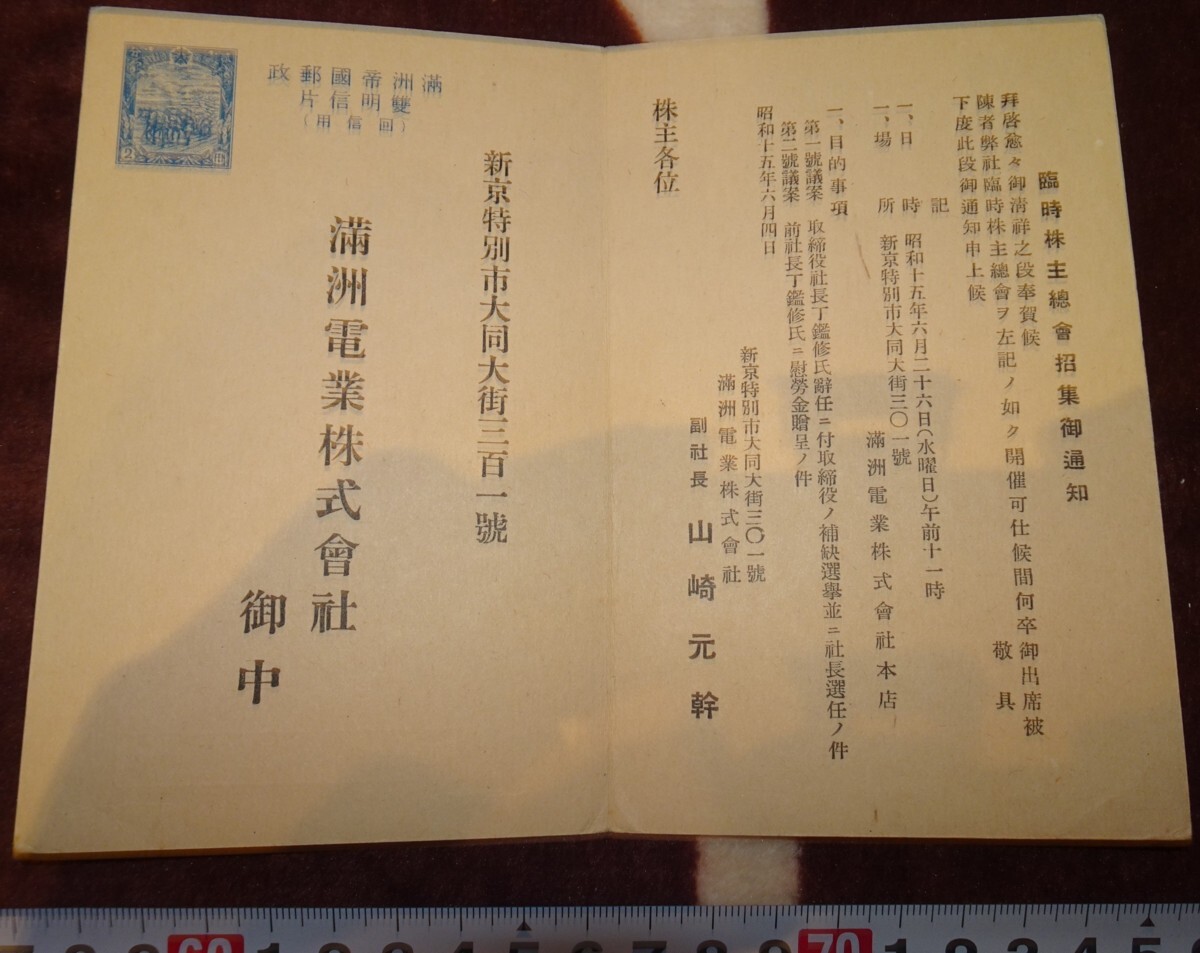 臨時株主總會招集御通知
拜啓愈々御淸祥之段奉賀候
陳者弊社臨時株主總會ヲ左記ノ如ク開催可仕候間何卒御出席被
下度此段御通知申上候
敬具
記
一、日時 昭和十五年六月二十六日(水曜日)午前十一時
一、場所 新京特別市大同大街三〇一號
滿洲電業株式會社本店
一、目的事項
第一號議案 取締役社長丁鑑修氏辭任ニ付取締役ノ補缺選擧並ニ社長選任ノ件
第二號議案 前社長丁鑑修氏ニ慰勞金贈呈ノ件
昭和十五年六月四日
新京特別市大同大街三〇一號
滿洲電業株式會社
副社長 山崎元幹
株主各位
政郵國帝洲滿
片信明雙
(用信回)
2
新京特別市大同大街三百一號
滿洲電業株式會社
御中
60 1 2 3 4 5 6 7 8 9 70 1 2 3 4 5 6